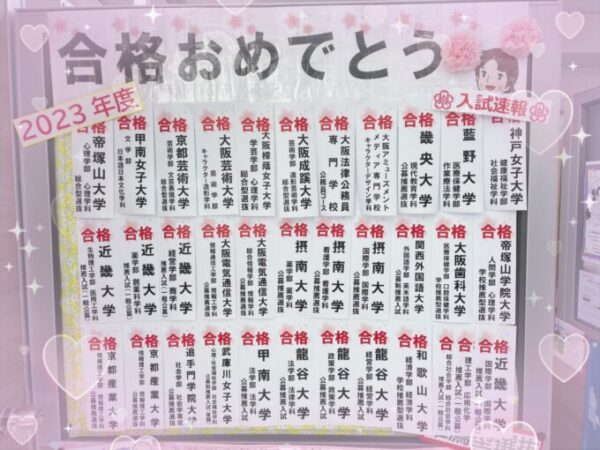 合格おめでとう
2023年度
入試速報
合格 神戸女子大学
健康福祉学部
社会福祉学科
合格 藍野大学
医療保健学部
作業療法学科
合格 畿央大学
現代教育学科
公募推薦選抜
合格 大阪アミューズメント
メディア専門学校
キャラクターデザイン学科
合格 大阪法律公務員
専門学校
公務員コース
合格 大阪成蹊大学
芸術学部 造形芸術学科
総合型選抜
合格 大阪樟蔭女子大学
学芸学部 心理学科
総合型選抜
合格 大阪芸術大学
芸術学部
キャラクター造形学科
合格 京都芸術大学
芸術学部 文芸表現学科
総合型選抜
合格 甲南女子大学
文学部
日本語日本文化学科
合格 帝塚山大学
心理学部 心理学科
総合型選抜
合格 帝塚山学院大学
人間学部 心理学科
学校推薦型選抜
合格 大阪歯科大学
医療保健学部 口腔保健学科
推薦入試(一般公募)
合格 関西外国語大学
外国語学部 英米語学科
公募制推薦入試
合格 摂南大学
国際学部 国際学科
公募推薦入試
合格 摂南大学
看護学部 看護学科
公募推薦入試
合格 摂南大学
薬学部 薬学科
公募推薦入試
合格 大阪電気通信大学
総合情報学部 情報学科
公募推薦選抜
合格 大阪電気通信大学
情報通信工学部 情報工学科
公募推薦選抜
合格 近畿大学
経営学部 商学科
推薦入試(一般公募)
合格 近畿大学
薬学部 創薬科学科
推薦入試(一般公募)
合格 近畿大学
生物理工学部 医用工学科
推薦入試(一般公募)
合格 近畿大学
国際学部 国際学科
推薦入試(一般公募)
理工学部 応用化学科
推薦入試(一般公募)
合格 和歌山大学
経済学部 経済学科
学校推薦型選抜
合格 龍谷大学
経営学部 経営学科
公募推薦入試
合格 龍谷大学
政策学部 政策学科
公募推薦入試
合格 龍谷大学
法学部 法律学科
公募推薦入試
合格 甲南大学
法学部 法学科
公募推薦入試
合格 武庫川女子大学
合格 追手門学院大学
社会学部 社会学科
公募推薦選抜
合格 京都産業大学
情報理工学部 情報理工学科
公募推薦選抜
合格 京都産業大学
情報理工学部 情報理工学科
公募推薦選抜